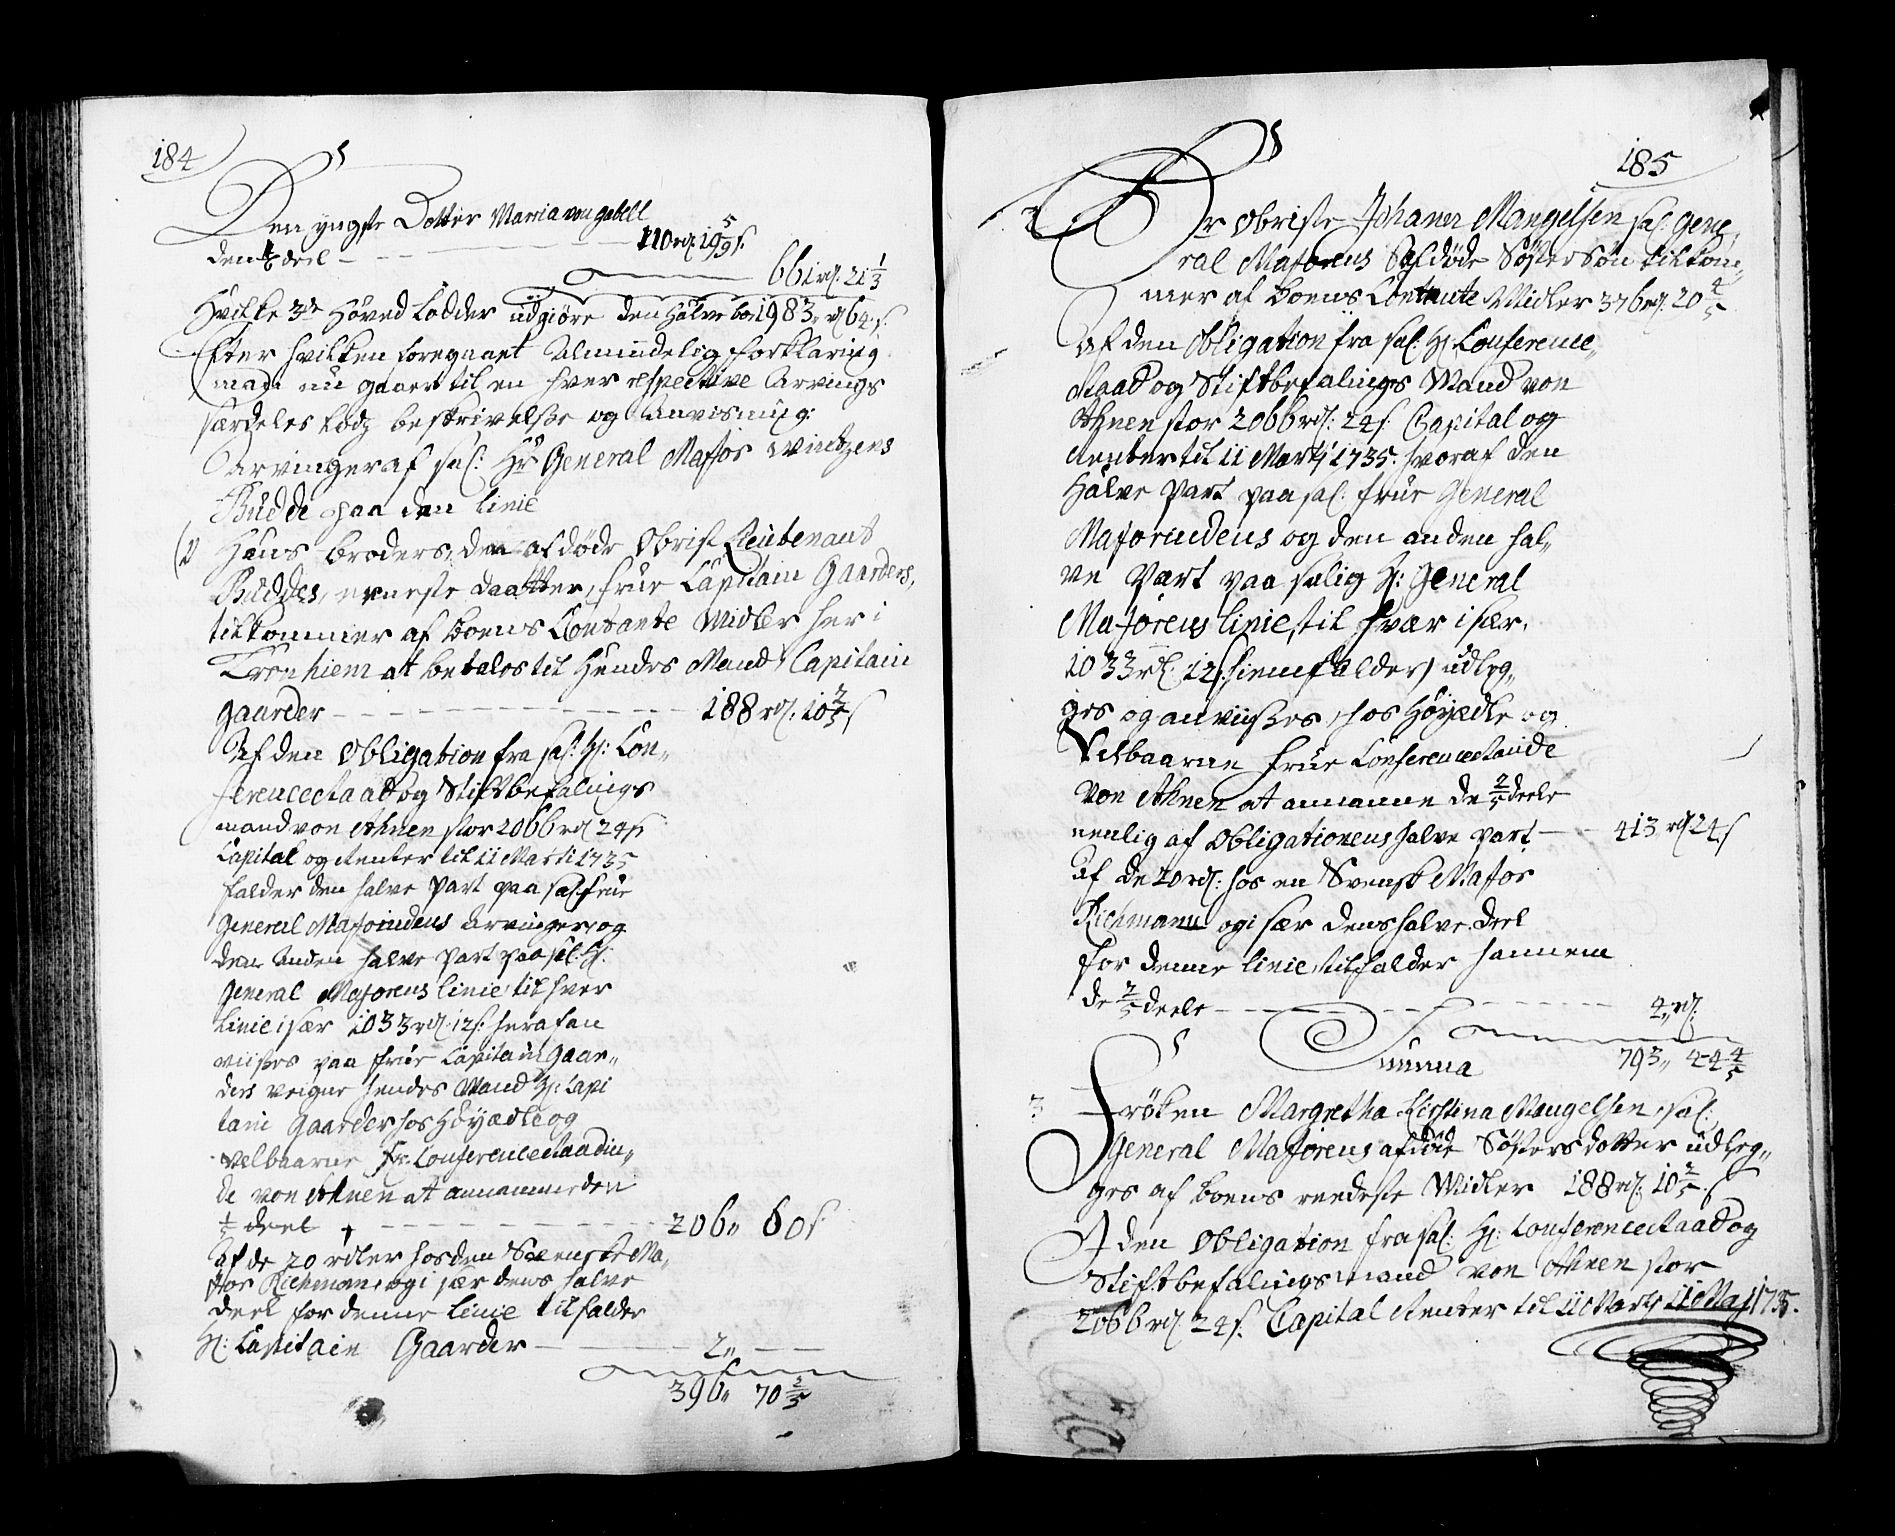 184
Den yngste Dotter Maria von Gabell
den 1/6 deel - - - 110 rd. 19 5/9 s.
661 rd. 21 1/3
Hvilke 3de Hoved Lodder udgiøre den Halve boe 1983,, rd 64 s.
Efter hvilken foregaaet Almindelig forklaring
mand nu gaaer til en hver respective Arvings
særdeles Lodz beskrivelse og Anvisning.
Arvinger af sal: Hr General Major Vintzens
Budde paa den Linie
1) Hans broders, den afdøde Obrist Lieutenant
Buddes, eeneste daatter, frue Capitain Gaarders,
tilkommer af boens Contante Midler her i
Tronhiem at betales til Hendes Mand Capitain
Gaarder - - - 188 rd. 10 2/5 s
Af den Obligation fra sal. Hr: Con-
ferenceRaad og Stiftbefalings
mand von Ahnen stor 2066 rd 24 s
Capital og Renter til 11 Marti 1735
falder den halve part paa sal. frue
General Majorindens Arvinger, og
den Anden halve part paa sal: Hr:
General Majorens Linie, til hver
Linie især 1033 rd. 12 s: heraf an
viises paa frue Capitain Gaar-
ders veigne hendes Mand Hr: Capi
tain Gaarder hos Høyædle og
Velbaarne Fr: ConferenceRaadin-
de von Ahnen at annamme den
1/5 deel - - - 206,, 60 s
Af de 20 rdler hos den Svenske Ma-
jor Richman, og i sær dens halve
deel for denne Linie tilfalder
Hr: Capitain Gaarder - - - 2,, - -
396,, 70 2/5
185
2 Hr Obriste Johann Mangelsen sal. Gene-
ral Majorens Afdøde Søster Søn tilkom-
mer af boens Contante Midler 376 rd. 20 4/5
Af den Obligation fra sal. Hr Conference-
Raad og Stiftbefalings Mand von
Ahnen stor 2066 rd. 24 s. Capital og
Renter til 11 Martj 1735. hvoraf den
Halve Part paa sal. frue General
Majorindens og den anden hal-
ve Part paa salig Hr: General
Majorens Linie, til hver i sær,
1033 rd. 12 s. hiemfalder, udleg-
ges og anviises, hos Høyædle og
Velbaarne Frue ConferenceRaadinde
von Ahnen at annamme de 2/5 deele
nemlig af Obligationens halve part - - 413 rd 24 s
Af de 20 rd. hos en Svensk Major
Richmann og i sær dens halve deel
for denne Linie, tilfalder hannem
de 2/5 deele - - - 4,, rd.
Summa 793,, 44 4/5
3 Frøken Margretha Kirstina Mangelsen, sal:
General Majorens afdøde Søsters dotter udleg-
ges af boens reedeste Midler 188 rd. 10 2/5 s
I den Obligation fra sal. Hr: ConferenceRaad og
Stiftbefalingsmand von Ahnen stor
2066 rd. 24 s. Capital Renter til 11 Martj 1735.